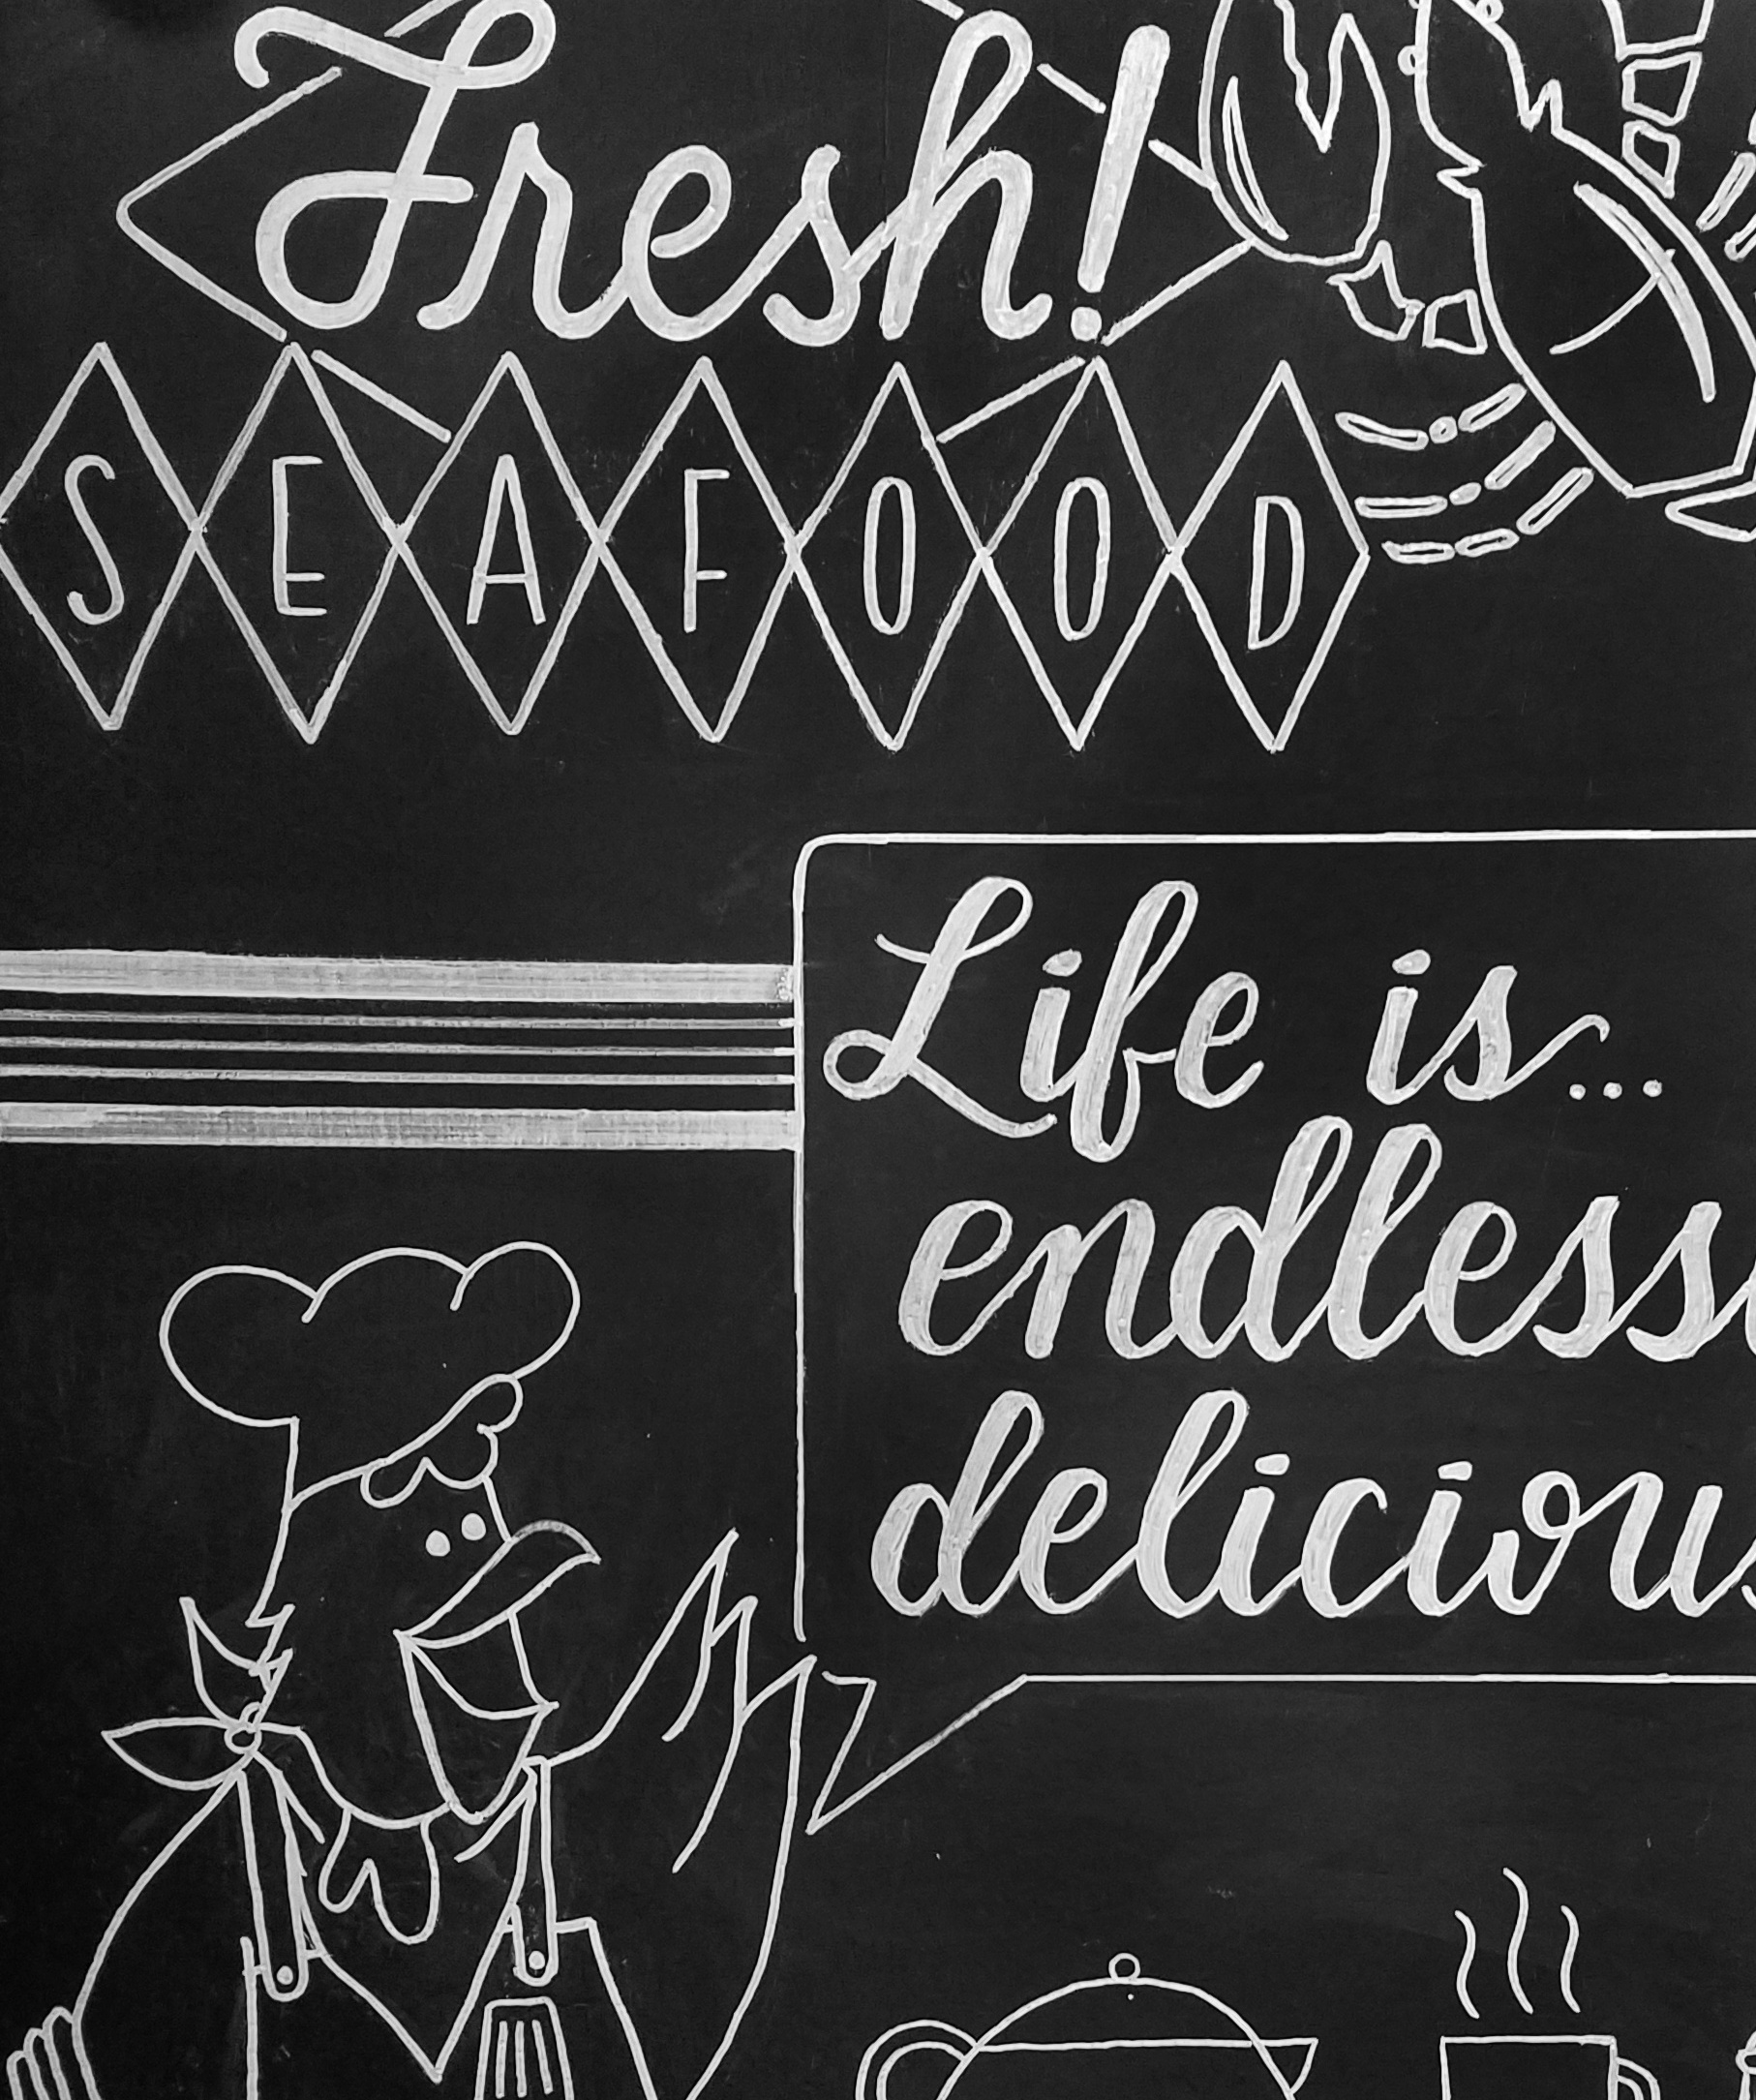 Fresh!
SEAFOOD
Life is...
endless
delicious